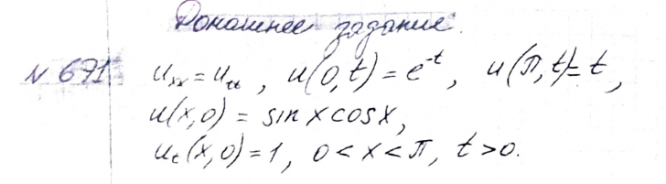 Домашнее задание.
N 671 u_xx = u_tt, u(0,t) = e^-t, u(π,t) = t,
u(x,0) = sin x cos x,
u_t(x,0) = 1, 0 < x < π, t > 0.